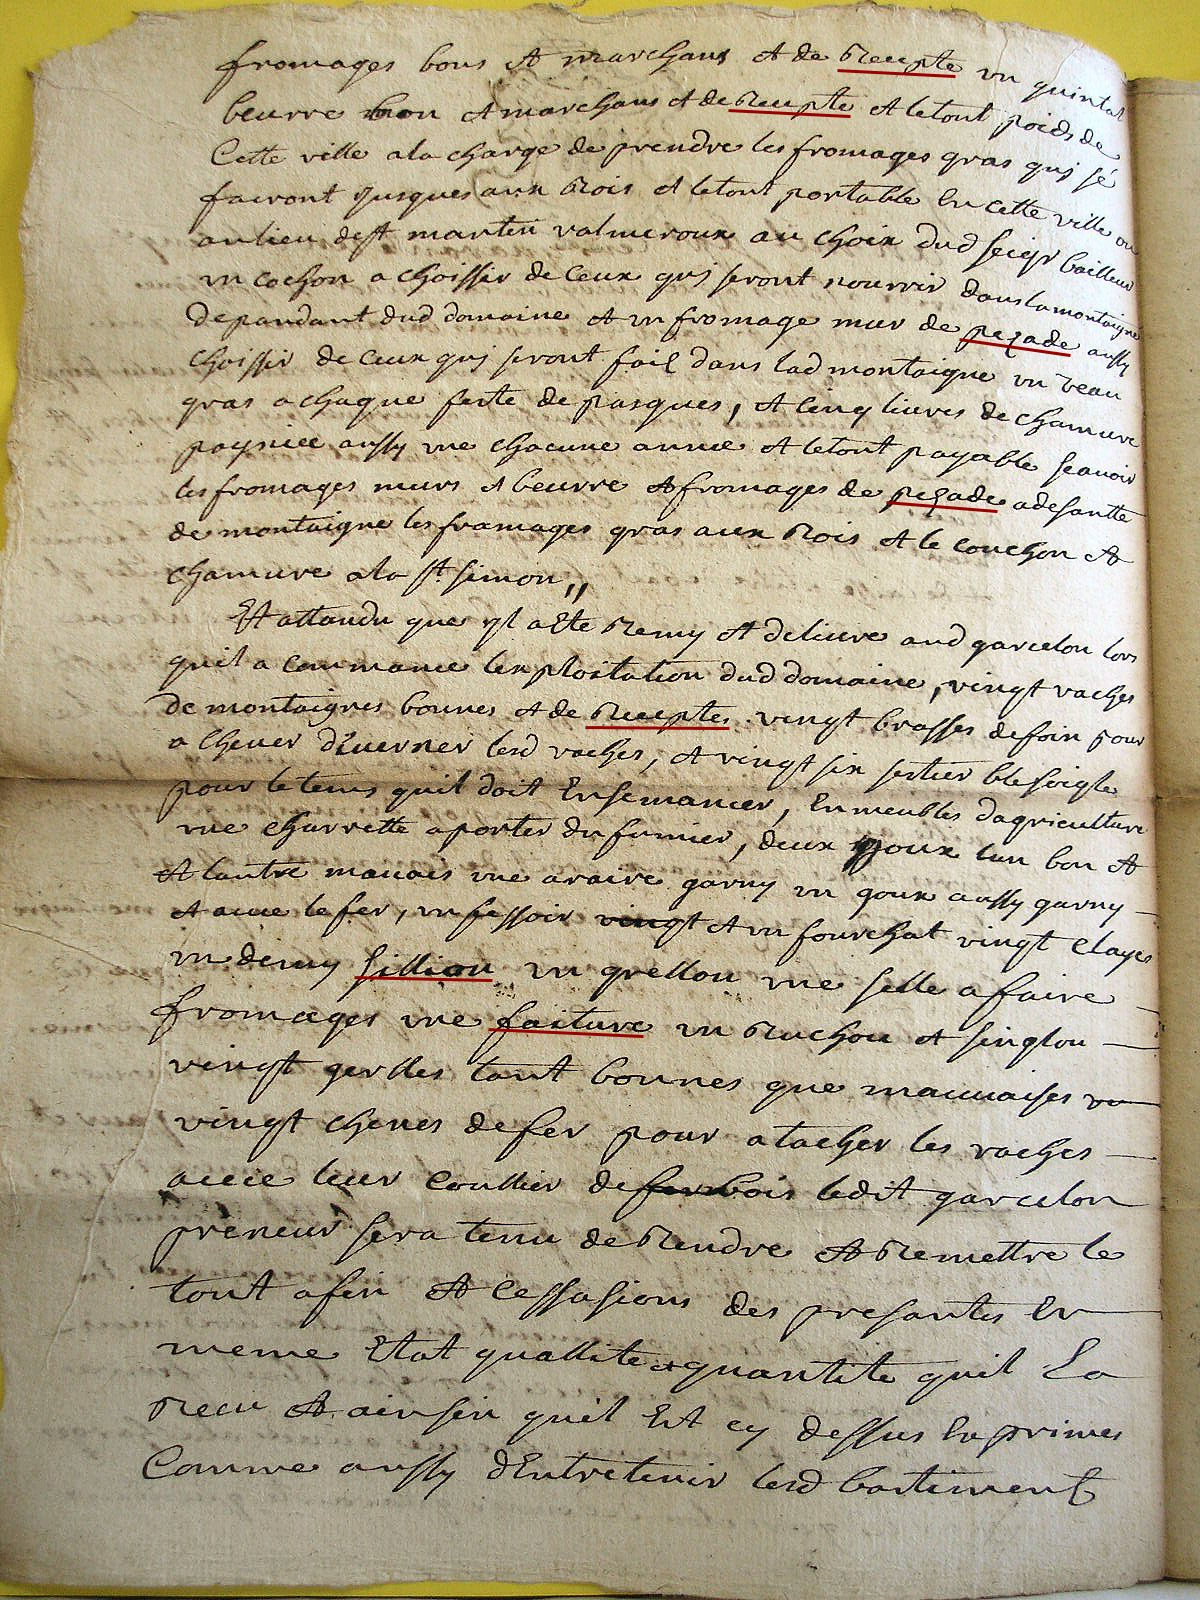 fromages bons et marchans et de recepte un quintal
beurre bon et marchans et de recepte et letout poids de
Cette ville ala charge de prendre les fromages gras quj sé
fairont jusques aux Rois et letout portable En cette ville ou
aulieu de st martin valmeroux au choix dud seigr bailleur
un cochon a choissir de Ceux quj seront nourrir dans la montaigne
depandant dud domaine et un fromage mur de pezade aussy
choissir de ceux quj seront fait dans lad montaigne un veau
gras a chaque feste de pasques, et cinq livres de chamvre
paysice aussy une chacune annee et letout payable scavoir
les fromages murs et beurre et fromages de pezade adesante
de montaigne les framages gras aux Rois et le couchon et
chamvre ala st simon,,
Et attandu que yl a Ete Remy et delivre aud garcelon lors
quil a commance lexploitation dud domaine, vingt vaches
de montaignes bonnes et de Receptes vingt brasses de foin pour
achever divernér lesd vaches, et vingt six sestier blé seigle
pour le tems quil doit Ensemancer, En meubles dagriculture
une charrette aporter du fumier, deux joux lun bon et
et lautre mauvais une araire garny un joux aussy garny
et avec le fer, un fessoir vingt et un fourchat vingt Clayes
un demy sillion un grellou une selle a faire
fromages une faiture un Ruchou et singlou
vingt gerlles tant bonnes que mauvaises
vingt chenes de fer pour atacher les vaches
avec leur Coullier de fer bois ledit garcelon
preneur sera tenu de Rendre et Remettre le
tout afin et Cessasions des presantes En
meme Etat quallite et quantite quil La
Recu et ainsin quil Est cy dessus Exprimes
Comme aussy dEntretenir lesd bastiment